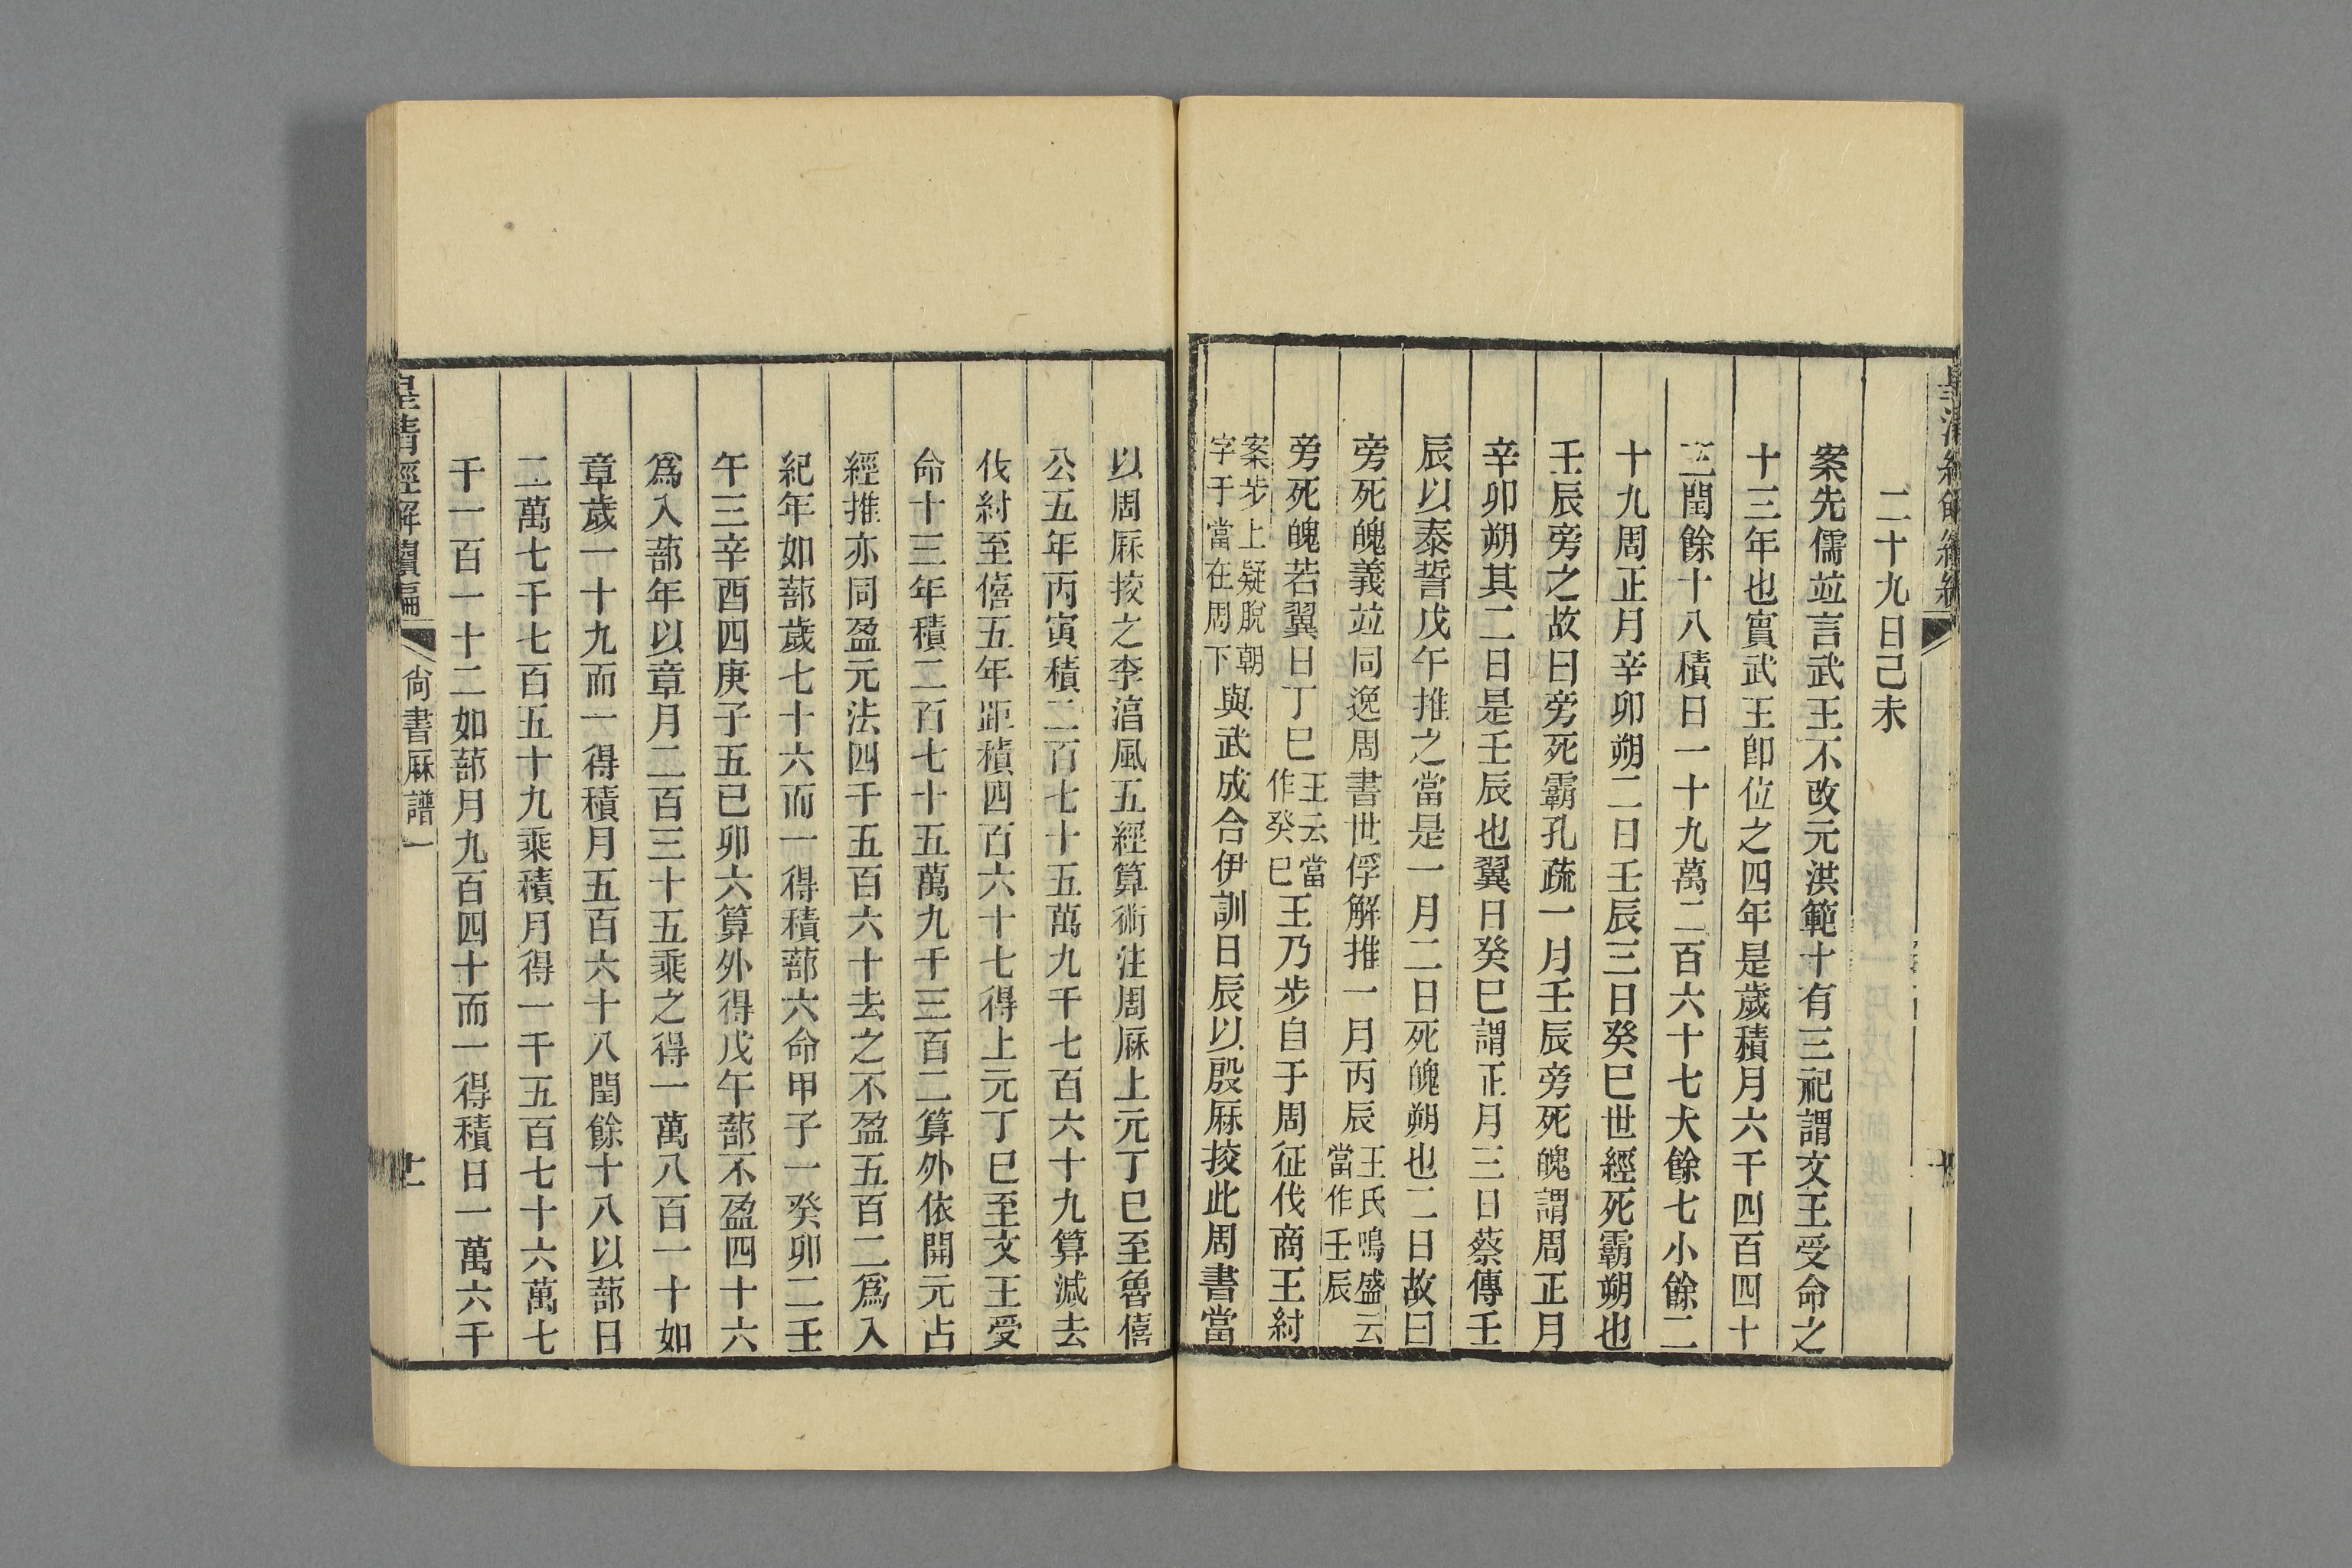 二十九日己未
案先儒竝言武王不改元洪範十有三祀謂文王受命之
十三年也實武王卽位之四年是歲積月六千四百四十
三閏餘十八積日一十九萬二百六十七大餘七小餘二
十九周正月辛卯朔二日壬辰三日癸巳世經死霸朔也
壬辰旁之故曰旁死霸孔疏一月壬辰旁死魄謂周正月
辛卯朔其二日是壬辰也翼日癸巳謂正月三日蔡傳壬
辰以泰誓戊午推之當是一月二日死魄朔也二日故曰
旁死魄義竝同逸周書世俘解推一月丙辰王氏鳴盛云當作壬辰
旁死魄若翼日丁巳王云當作癸巳王乃步自于周征伐商王紂
案步上疑脫朝字于當在周下與武成合伊訓日辰以殷厤挍此周書當
以周厤挍之李湻風五經算術注周厤上元丁巳至魯僖
公五年丙寅積二百七十五萬九千七百六十九算減去
伐紂至僖五年距積四百六十七得上元丁巳至文王受
命十三年積二百七十五萬九千三百二算外依開元占
經推亦同盈元法四千五百六十去之不盈五百二爲入
紀年如蔀歲七十六而一得積蔀六命甲子一癸卯二壬
午三辛酉四庚子五已卯六算外得戊午蔀不盈四十六
爲入蔀年以章月二百三十五乘之得一萬八百一十如
章歲一十九而一得積月五百六十八閏餘十八以蔀日
二萬七千七百五十九乘積月得一千五百七十六萬七
千一百一十二如蔀月九百四十而一得積日一萬六千
皇清經解續編
尙書厤譜一
十一